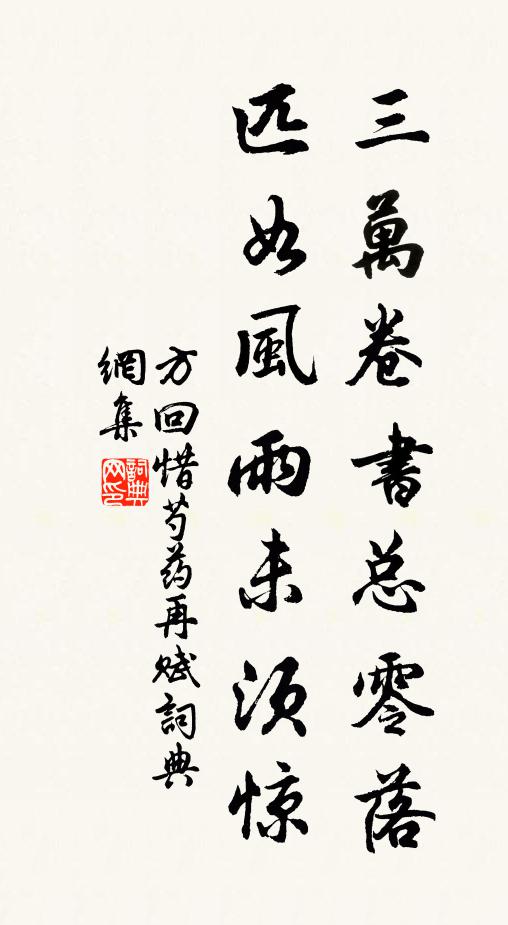 三萬卷書总零落
匹如風雨未須惊
方回惜芍药再赋詞典
網集
詞典
网印